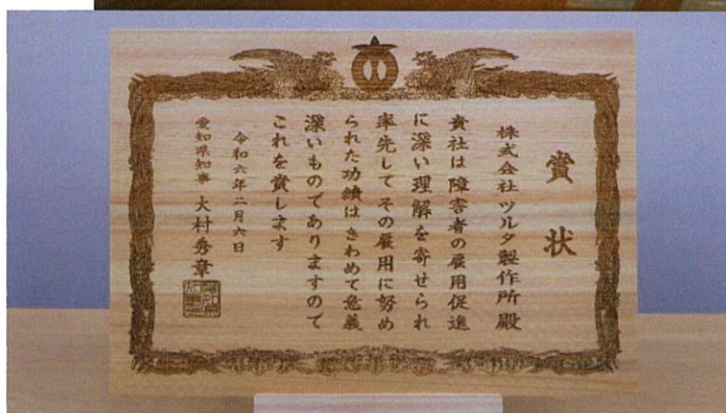 賞状
株式会社ツルタ製作所殿
貴社は障害者の雇用促進
に深い理解を寄せられ
率先してその雇用に努め
られた功績はきわめて意義
深いものでありますので
これを賞します
令和六年二月六日
愛知県知事 大村秀章